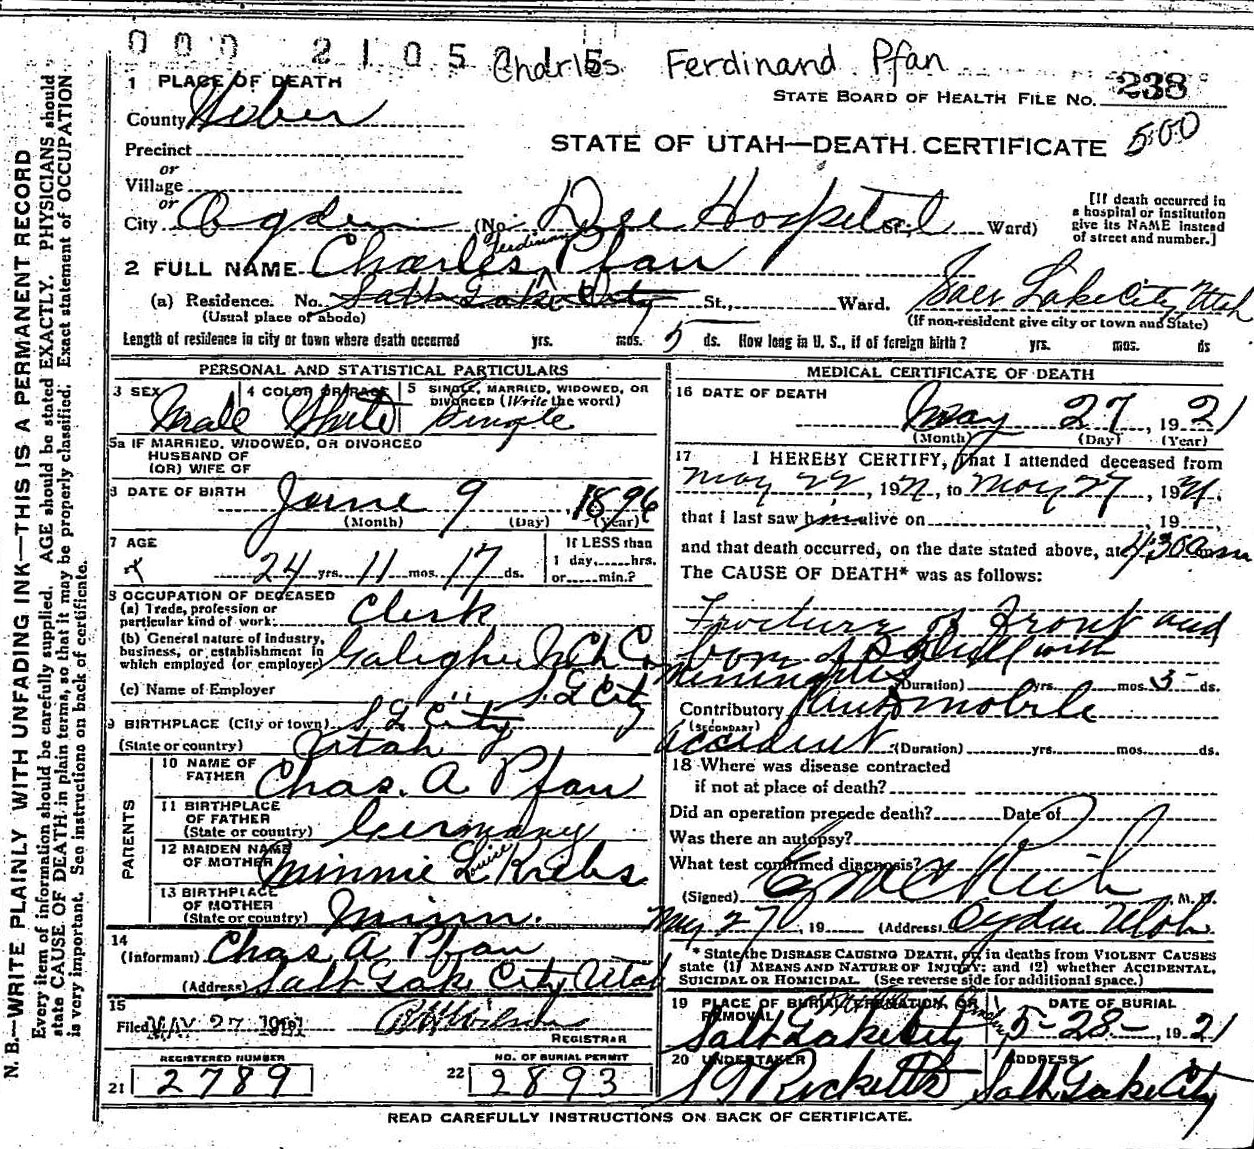 000 2105 Charles Ferdinand Pfan
1 PLACE OF DEATH
STATE BOARD OF HEALTH FILE NO. 238
County Weber
STATE OF UTAH—DEATH CERTIFICATE 500
Precinct
or
Village
or
City Ogden (No. Dee Hospital St.; Ward)
[If death occurred in
a hospital or institution
give its NAME instead
of street and number.]
2 FULL NAME Charles Ferdinan Pfan
(a) Residence. No. Salt Lake City St., Ward. Salt Lake City Utah
(Usual place of abode) (If non-resident give city or town and State)
Length of residence in city or town where death occurred yrs. mos. 5 ds. How long in U. S., if of foreign birth? yrs. mos. ds
PERSONAL AND STATISTICAL PARTICULARS
3 SEX Male 4 COLOR OR RACE White 5 SINGLE, MARRIED, WIDOWED, OR
DIVORCED (Write the word) Single
5a IF MARRIED, WIDOWED, OR DIVORCED
HUSBAND OF
(OR) WIFE OF
6 DATE OF BIRTH June 9, 1896
(Month) (Day) (Year)
7 AGE 24 yrs. 11 mos. 17 ds.
If LESS than
1 day, hrs.
or min.?
8 OCCUPATION OF DECEASED
(a) Trade, profession or
particular kind of work: Clerk
(b) General nature of industry,
business, or establishment in
which employed (or employer) Galigher Mch Co
(c) Name of Employer " S. L. City
9 BIRTHPLACE (City or town) S L City
(State or country) Utah
PARENTS
10 NAME OF
FATHER Chas. A Pfan
11 BIRTHPLACE
OF FATHER
(State or country) Germany
12 MAIDEN NAME
OF MOTHER Minnie Louise Krebs
13 BIRTHPLACE
OF MOTHER
(State or country) Minn.
14
(Informant) Chas A Pfan
(Address) Salt Lake City Utah
15
Filed MAY 27 1921 Wilson
REGISTRAR
REGISTERED NUMBER
21 2789
NO. OF BURIAL PERMIT
22 2893
MEDICAL CERTIFICATE OF DEATH
16 DATE OF DEATH
May 27, 1921
(Month) (Day) (Year)
17 I HEREBY CERTIFY, That I attended deceased from
May 22, 1921, to May 27, 1921.
that I last saw him alive on , 19 ,
and that death occurred, on the date stated above, at 4:30 a m
The CAUSE OF DEATH* was as follows:
Fracture of front and
of Skull with
Meningitis (Duration) yrs. mos. 5 ds.
Contributory Automobile
(SECONDARY)
accident (Duration) yrs. mos. ds.
18 Where was disease contracted
if not at place of death?
Did an operation precede death? Date of
Was there an autopsy?
What test confirmed diagnosis?
(Signed) Rich M. D.
May 27, 19 (Address) Ogden Utah
* State the DISEASE CAUSING DEATH, or in deaths from VIOLENT CAUSES
state (1) MEANS AND NATURE OF INJURY; and (2) whether ACCIDENTAL,
SUICIDAL OR HOMICIDAL. (See reverse side for additional space.)
19 PLACE OF BURIAL, CREMATION, OR
REMOVAL Salt Lake City
DATE OF BURIAL
5-28-, 1921
20 UNDERTAKER
S T Ricketts
ADDRESS
Salt Lake City
READ CAREFULLY INSTRUCTIONS ON BACK OF CERTIFICATE.
N. B.—WRITE PLAINLY WITH UNFADING INK—THIS IS A PERMANENT RECORD
Every item of information should be carefully supplied. AGE should be stated EXACTLY. PHYSICIANS should
state CAUSE OF DEATH in plain terms, so that it may be properly classified. Exact statement of OCCUPATION
is very important. See instructions on back of certificate.